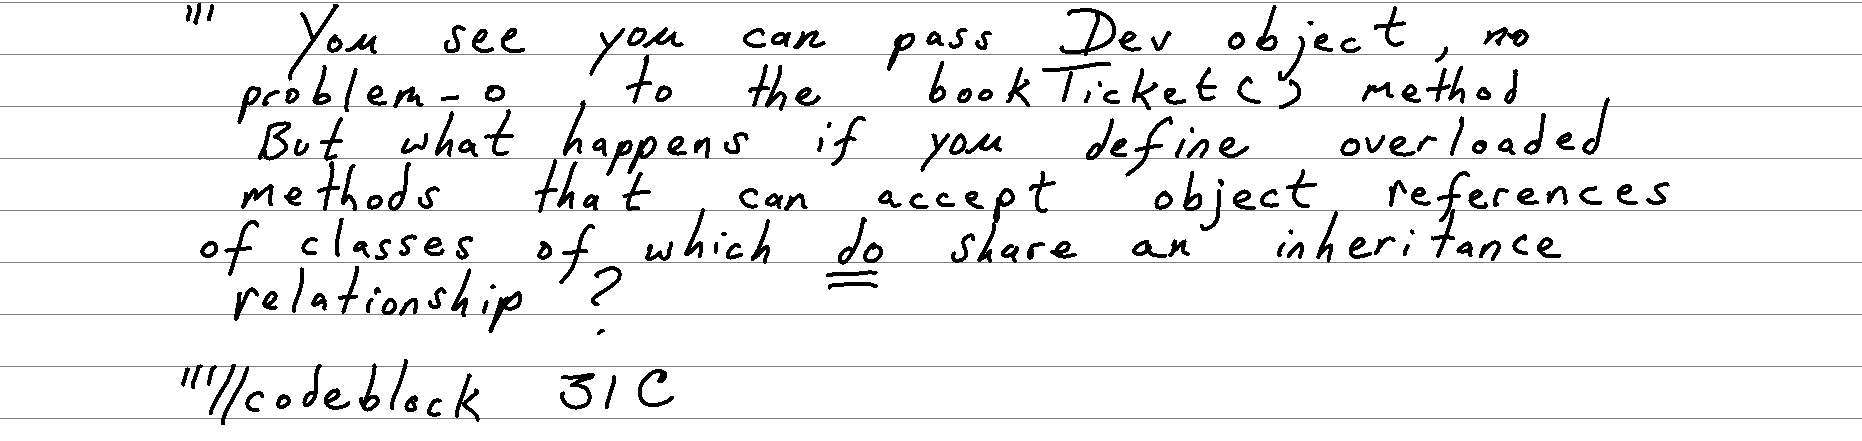 "' You see you can pass Dev object, no
problem-o, to the bookTicket() method
But what happens if you define overloaded
methods that can accept object references
of classes of which do share an inheritance
relationship ?
"'//codeblock 31C